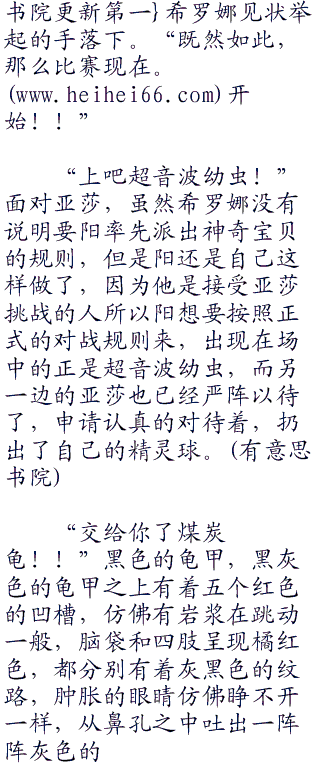 书院更新第一}希罗娜见状举
起的手落下。“既然如此，
那么比赛现在。
(www.heihei66.com)开
始！！”
“上吧超音波幼虫！”
面对亚莎，虽然希罗娜没有
说明要阳率先派出神奇宝贝
的规则，但是阳还是自己这
样做了，因为他是接受亚莎
挑战的人所以阳想要按照正
式的对战规则来，出现在场
中的正是超音波幼虫，而另
一边的亚莎也已经严阵以待
了，申请认真的对待着，扔
出了自己的精灵球。(有意思
书院)
“交给你了煤炭
龟！！”黑色的龟甲，黑灰
色的龟甲之上有着五个红色
的凹槽，仿佛有岩浆在跳动
一般，脑袋和四肢呈现橘红
色，都分别有着灰黑色的纹
路，肿胀的眼睛仿佛睁不开
一样，从鼻孔之中吐出一阵
阵灰色的